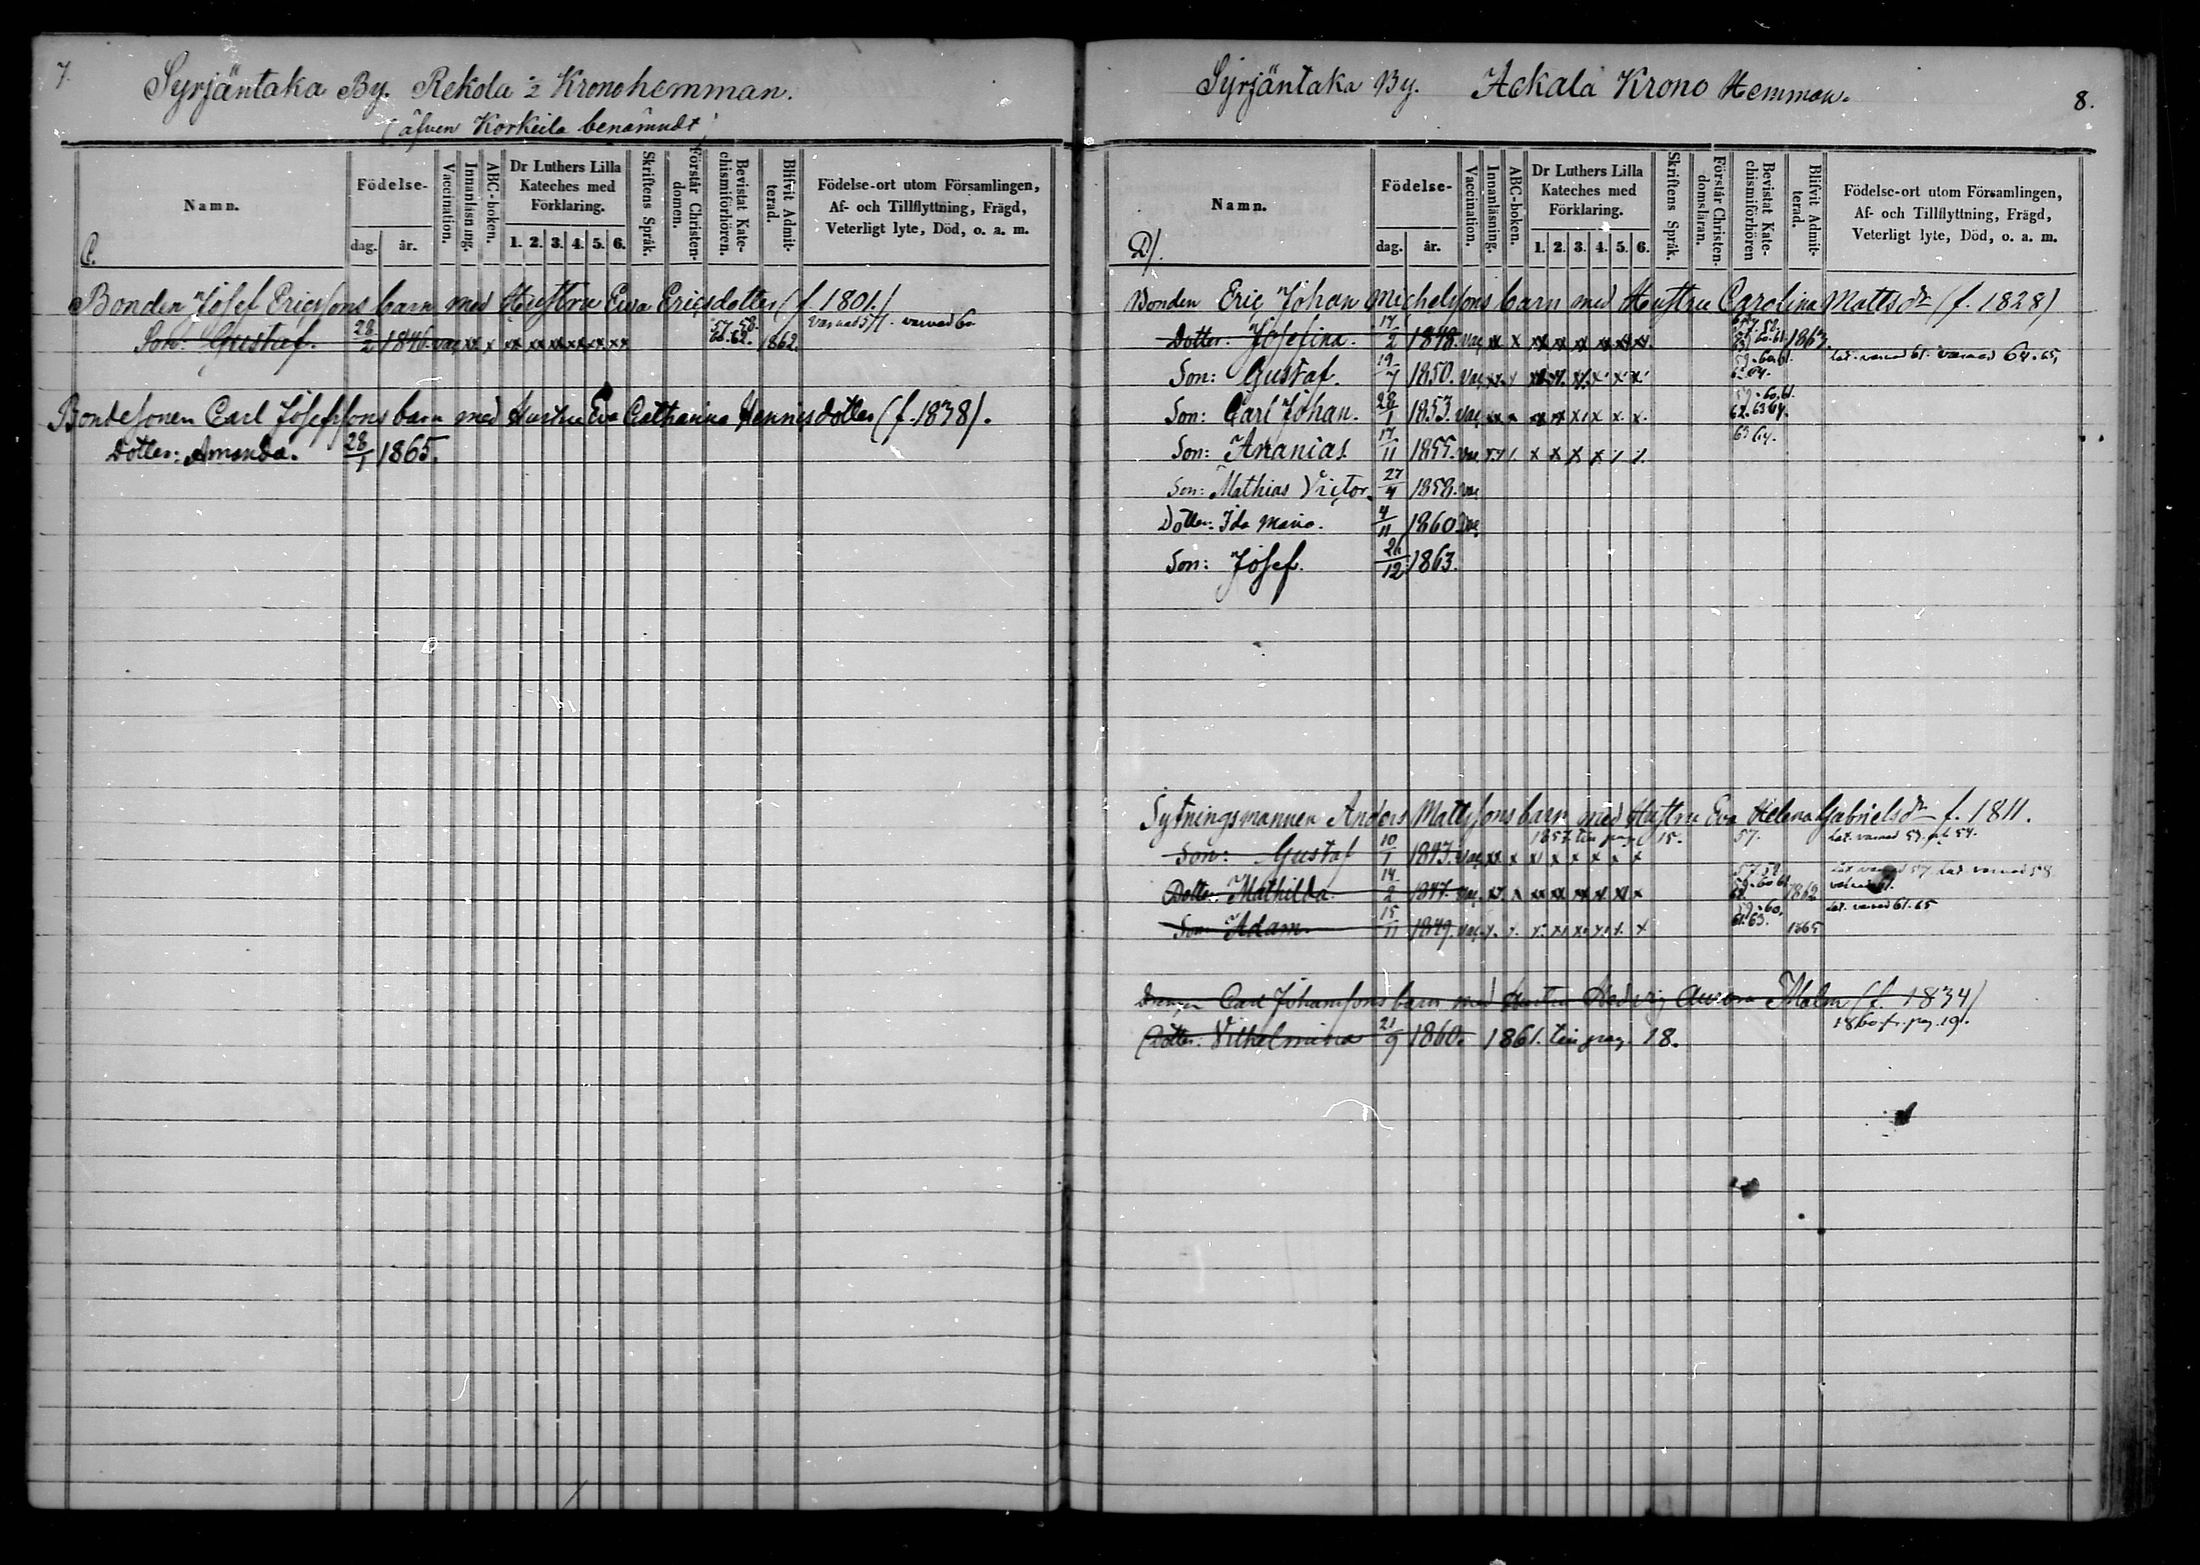 7.
Syrjäntaka By. Rekola ½ Kronohemman.
(äfven Korkeila benämndt)
Namn.
C.
Födelse-
dag. år.
Vaccination.
Innanläsning.
ABC-boken.
Dr Luthers Lilla Kateches med Förklaring.
1. 2. 3. 4. 5. 6.
Skriftens Språk.
Förstår Christendomen.
Bevistat Katechismiförhören.
Blifvit Admitterad.
Födelse-ort utom Församlingen,
Af- och Tillflyttning, Frägd,
Veterligt lyte, Död, o. a. m.
Bonden Josef Ericssons barn med Hustru Eva Ericsdotter (f. 1801.)
Son: Gustaf. 28/2 1846. vac. xx x xx xx xx xx x xx 57. 58. 60. 62. 1862. varnad 60
Bondesonen Carl Josefssons barn med Hustru Eva Catharina Hennicsdotter (f. 1838).
Dotter: Amanda. 28/1 1865.
Syrjäntaka By. Ackala Krono Hemman.
8.
Namn.
D).
Födelse-
dag. år.
Vaccination.
Innanläsning.
ABC-boken.
Dr Luthers Lilla Kateches med Förklaring.
1. 2. 3. 4. 5. 6.
Skriftens Språk.
Förstår Christendomsläran.
Bevistat Katechismiförhören
Blifvit Admitterad.
Födelse-ort utom Församlingen,
Af- och Tillflyttning, Frägd,
Veterligt lyte, Död, o. a. m.
Bonden Eric Johan Michelssons barn med Hustru Carolina Mattsdr (f. 1828)
Dotter: Josefina. 17/2 1848. vac. xx x xx xx xx xx xx xx 1863.
Son: Gustaf. 19/7 1850. vac. 59. 60. 61. varnad 64. 65.
Son: Carl Johan. 28/1 1853. vac. xx x xx xx x x x x. 59. 60. 61. 62. 63. 64.
Son: Ananias 17/11 1855. vac. x x x x x x 63 64.
Son: Mathias Victor. 27/4 1858. vac
Dotter: Ida Maria. 4/11 1860 vac.
Son: Josef. 26/12 1863.
Sytningsmannen Anders Mattssons barn med Hustru Eva Helena Gabrielsdr f. 1811.
Son: Gustaf 10/1 1843. vac. xx x x x x x x x 1857 till pag. 15. 57.
Dotter: Mathilda 14/2 1847. vac. 57. 58. 59. 60 61 62. 1862
Son: Adam. 15/11 1849. vac. 59. 60. 61. 63. 1865 varnad 61. 65
Drengen Carl Johanssons barn med Hustru Hedvig Aurora Malm (f. 1834)
1860 fr. pag. 19.
Dotter: Vilhelmina 21/9 1860. 1861. till pag. 18.